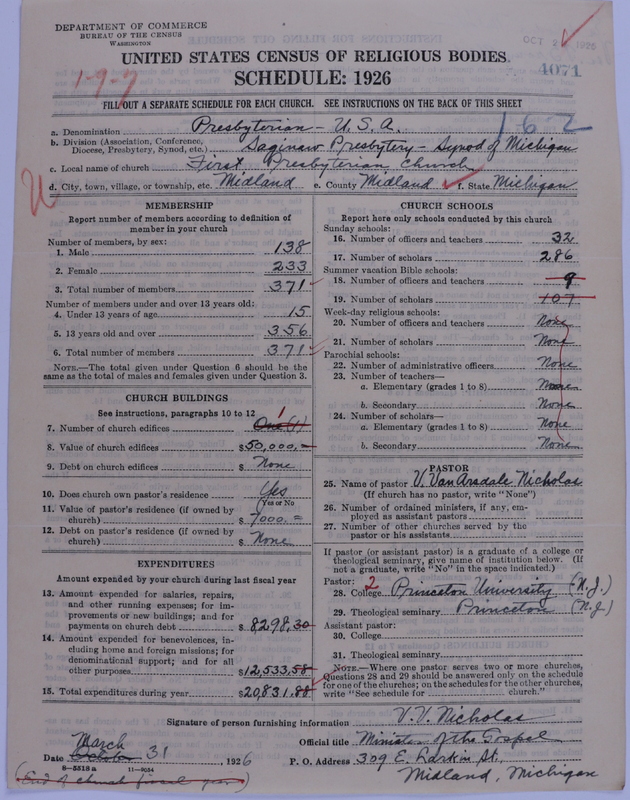 DEPARTMENT OF COMMERCE
BUREAU OF THE CENSUS
WASHINGTON
OCT 2 1926
4071
UNITED STATES CENSUS OF RELIGIOUS BODIES
SCHEDULE: 1926
1-9-7
FILL OUT A SEPARATE SCHEDULE FOR EACH CHURCH. SEE INSTRUCTIONS ON THE BACK OF THIS SHEET
16-2
a. Denomination Presbyterian - U.S.A.
b. Division (Association, Conference, Diocese, Presbytery, Synod, etc.) Saginaw Presbytery - Synod of Michigan
c. Local name of church First Presbyterian Church
d. City, town, village, or township, etc. Midland e. County Midland f. State Michigan
MEMBERSHIP
Report number of members according to definition of member in your church
Number of members, by sex:
1. Male 138
2. Female 233
3. Total number of members 371
Number of members under and over 13 years old:
4. Under 13 years of age 15
5. 13 years old and over 356
6. Total number of members 371
NOTE.—The total given under Question 6 should be the same as the total of males and females given under Question 3.
CHURCH BUILDINGS
See instructions, paragraphs 10 to 12
7. Number of church edifices One (1) 1
8. Value of church edifices $50,000.—
9. Debt on church edifices $ None
10. Does church own pastor's residence Yes
Yes or No
11. Value of pastor's residence (if owned by church) $ 7000. =
12. Debt on pastor's residence (if owned by church) $ None
EXPENDITURES
Amount expended by your church during last fiscal year
13. Amount expended for salaries, repairs, and other running expenses; for improvements or new buildings; and for payments on church debt $ 8298.30
14. Amount expended for benevolences, including home and foreign missions; for denominational support; and for all other purposes $12,533.58
15. Total expenditures during year $20,831.88
CHURCH SCHOOLS
Report here only schools conducted by this church
Sunday schools:
16. Number of officers and teachers 32
17. Number of scholars 286
Summer vacation Bible schools:
18. Number of officers and teachers 9
19. Number of scholars 107
Week-day religious schools:
20. Number of officers and teachers None
21. Number of scholars None
Parochial schools:
22. Number of administrative officers None
23. Number of teachers—
a. Elementary (grades 1 to 8) None
b. Secondary None
24. Number of scholars—
a. Elementary (grades 1 to 8) None
b. Secondary None
PASTOR
25. Name of pastor V. Van Arsdale Nicholas
(If church has no pastor, write "None")
26. Number of ordained ministers, if any, employed as assistant pastors
27. Number of other churches served by the pastor or his assistants
If pastor (or assistant pastor) is a graduate of a college or theological seminary, give name of institution below. (If not a graduate, write "No" in the space indicated.)
Pastor: 2
28. College Princeton University (N.J.)
29. Theological seminary Princeton (N.J)
Assistant pastor:
30. College
31. Theological seminary
NOTE.—Where one pastor serves two or more churches, Questions 28 and 29 should be answered only on the schedule for one of the churches; on the schedules for the other churches, write "See schedule for church."
Signature of person furnishing information V. V. Nicholas
Official title Minister of the Gospel
March
Date October 31 1926
P. O. Address 309 E. Larkin St.
8-5518 a 11-9054
Midland, Michigan
(End of church fiscal year)